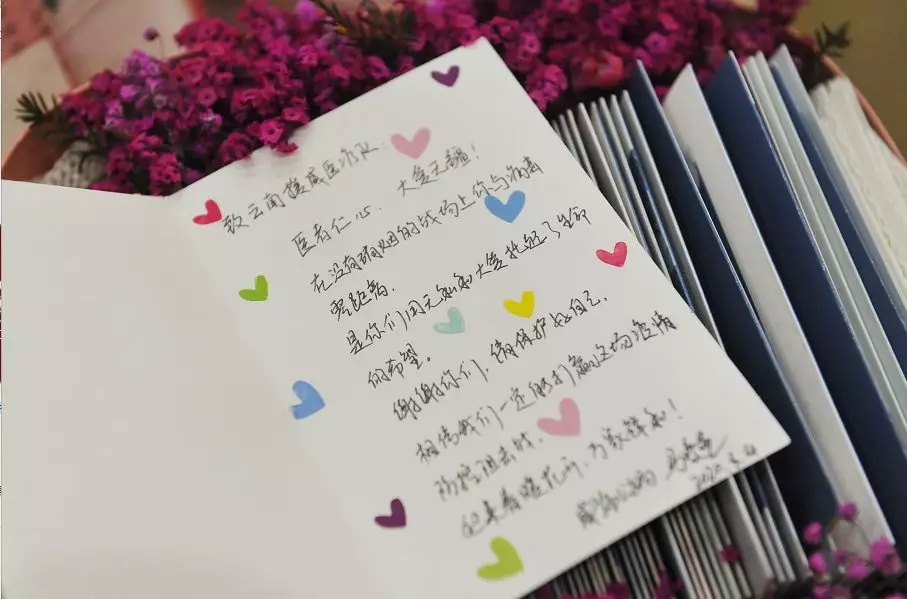 致云南援咸医疗队:
医者仁心、大爱无疆!
在没有硝烟的战场上你与病毒
零距离,
是你们用无私和大爱托起了生命
的希望。
谢谢你们,请保护好自己,
相信我们一定能打赢这场疫情
防控阻击战,
春暖花开,
咸